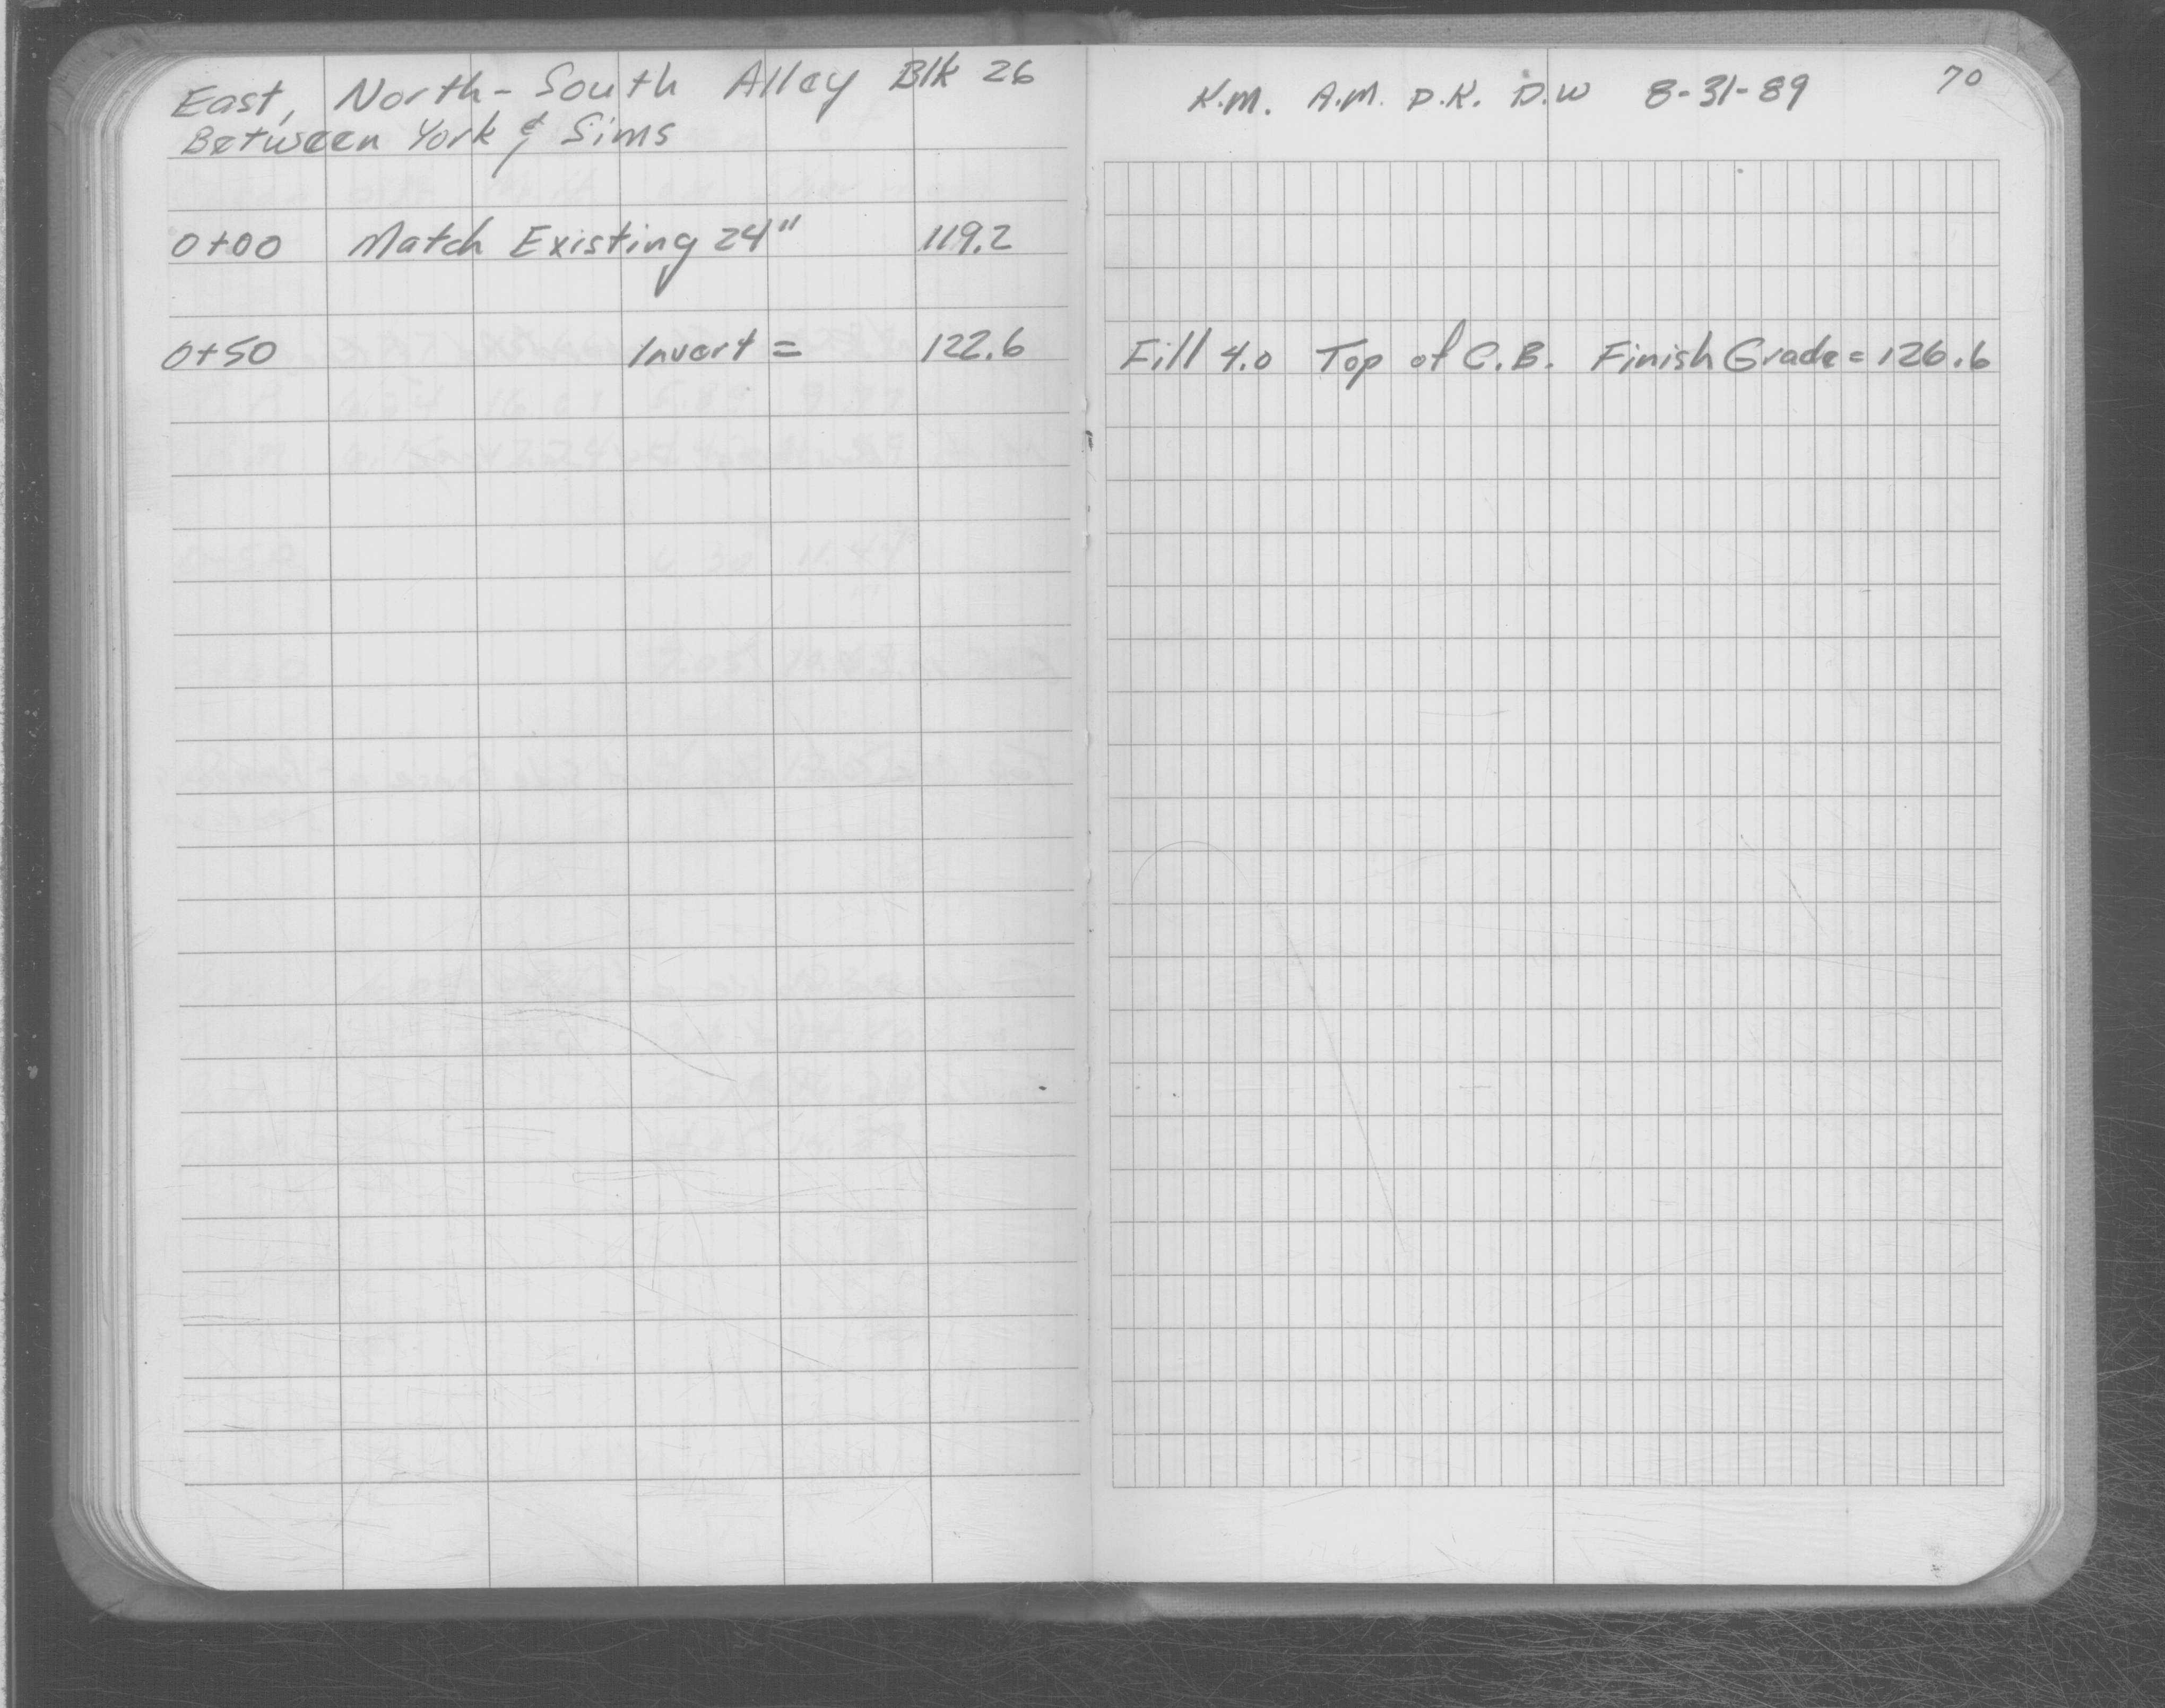 East, North-South Alley Blk 26
Between York & Sims
0+00 Match Existing 24" 119.2
0+50 Invert = 122.6
K.M. A.M. D.K. D.W 8-31-89 70
Fill 4.0 Top of C.B. Finish Grade = 126.6